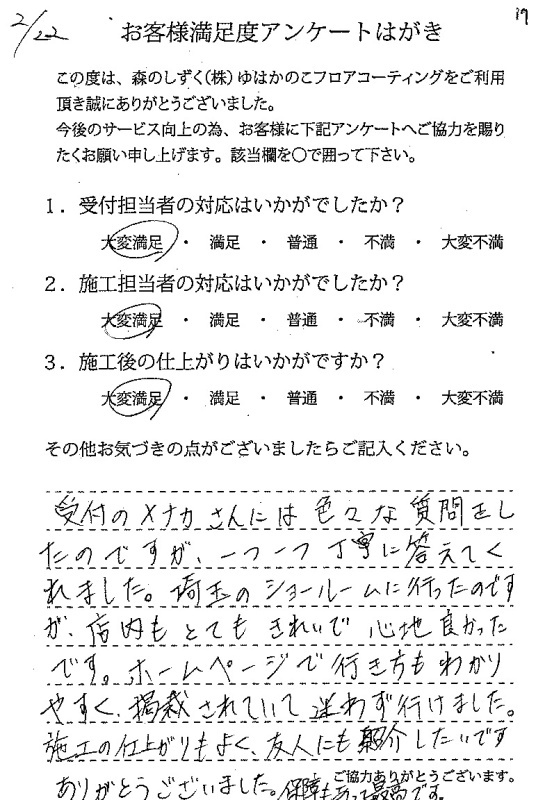 2/22
19
お客様満足度アンケートはがき
この度は、森のしずく(株)ゆはかのこフロアコーティングをご利用
頂き誠にありがとうございました。
今後のサービス向上の為、お客様に下記アンケートへご協力を賜り
たくお願い申し上げます。該当欄を○で囲って下さい。
1．受付担当者の対応はいかがでしたか？
大変満足 ・ 満足 ・ 普通 ・ 不満 ・ 大変不満
2．施工担当者の対応はいかがでしたか？
大変満足 ・ 満足 ・ 普通 ・ 不満 ・ 大変不満
3．施工後の仕上がりはいかがですか？
大変満足 ・ 満足 ・ 普通 ・ 不満 ・ 大変不満
その他お気づきの点がございましたらご記入ください。
受付のメナカさんには色々な質問をし
たのですが、一つ一つ丁寧に答えてく
れました。埼玉のショールームに行ったのです
が、店内もとてもきれいで心地良かった
です。ホームページで行き方もわかり
やすく、掲載されていて迷わず行けました。
施工の仕上がりもよく、友人にも紹介したいです
ご協力ありがとうございます。
ありがとうございました。保障もあって最高です。